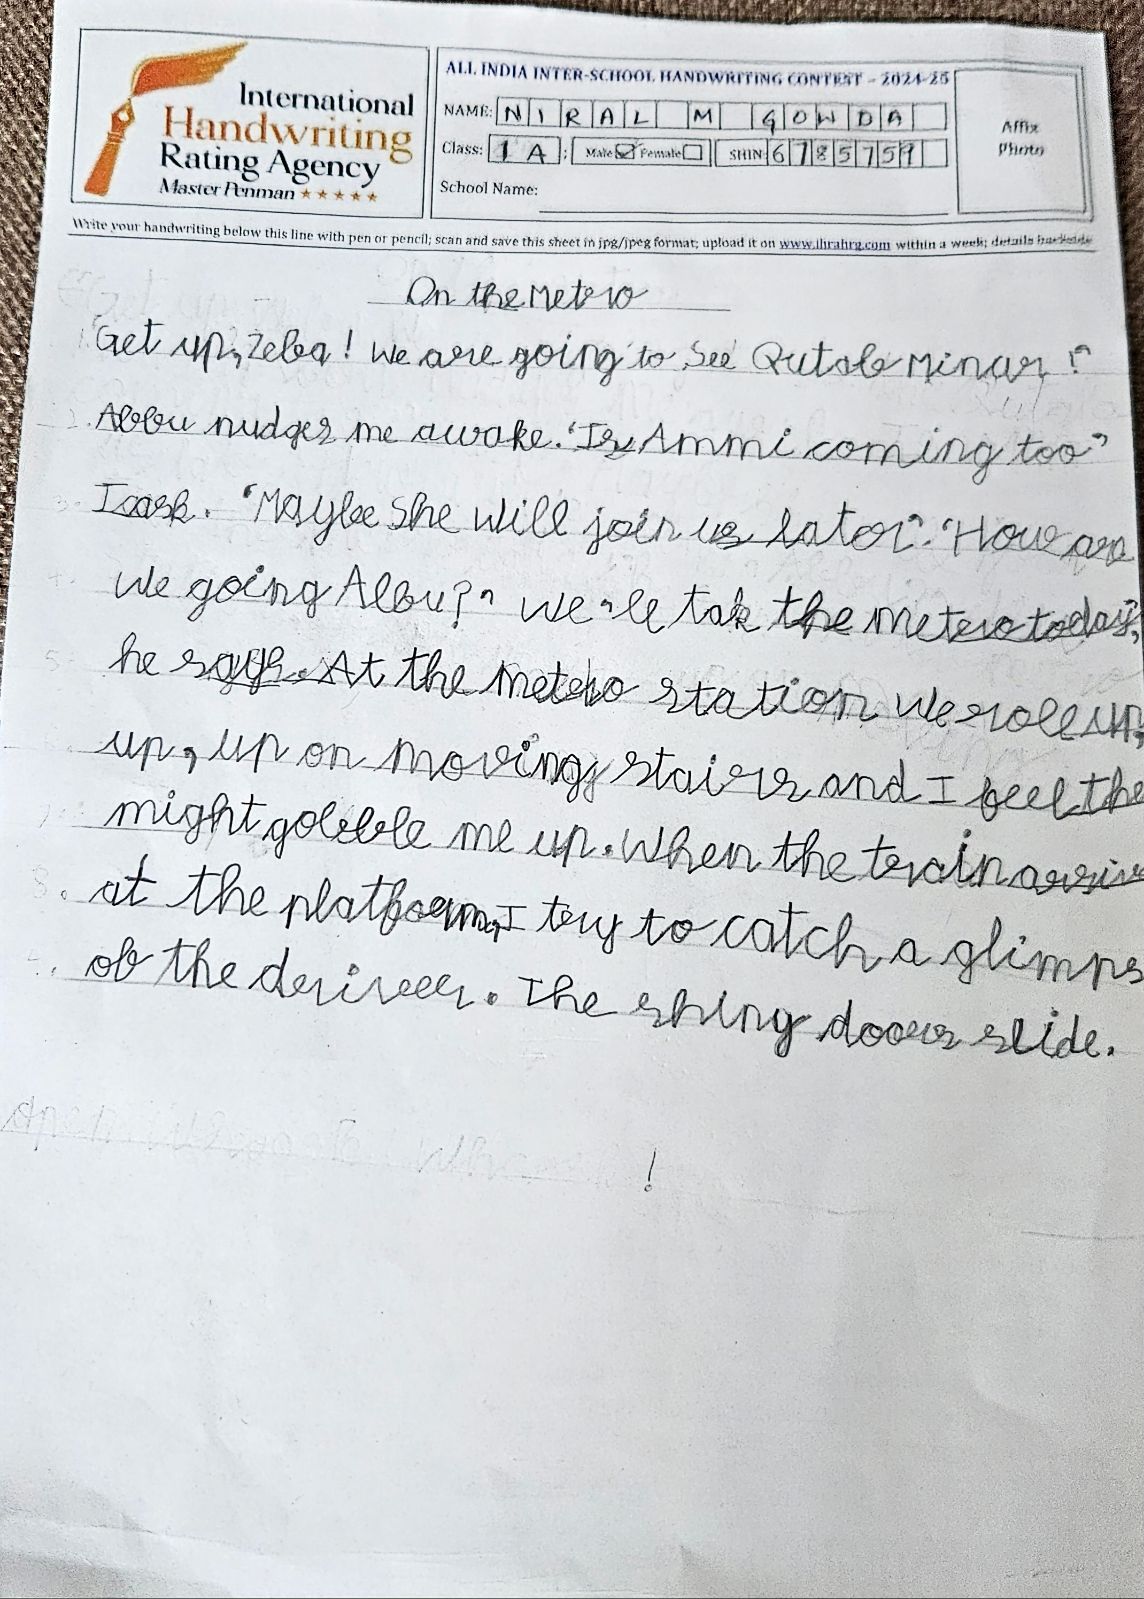 International
Handwriting
Rating Agency
Master Penman ★★★★★
ALL INDIA INTER-SCHOOL HANDWRITING CONTEST – 2024-25
NAME: NIRAL M GOWDA
Class: 1 A; Male ☑ Female ☐ SHIN: 6785759
School Name:
Affix
Photo
Write your handwriting below this line with pen or pencil; scan and save this sheet in jpg/jpeg format; upload it on www.ihrahrg.com within a week; details backside
On the Metro
1. Get up, Zeba! We are going to See Qutab Minar!"
2. Abbu nudges me awake. "Is Ammi coming too"
3. I ask. "Maybe She will join us lator". "How are
4. we going Abbu?" we'll tak the metro today",
5. he says. At the metro station we roll up,
up, up on moving stairs and I feel the
7. might gobble me up. When the train arrive
8. at the platform, I try to catch a glimps
of the driver. The shiny doors slide.
!